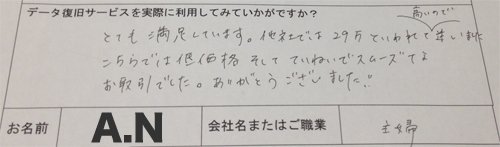 データ復旧サービスを実際に利用してみていかがですか？
高いので
とても満足しています。他社では29万といわれて迷いました
こちらでは低価格そしてていねいでスムーズでな
お取引でした。ありがとうございました!!
お名前 A.N 会社名またはご職業 主婦